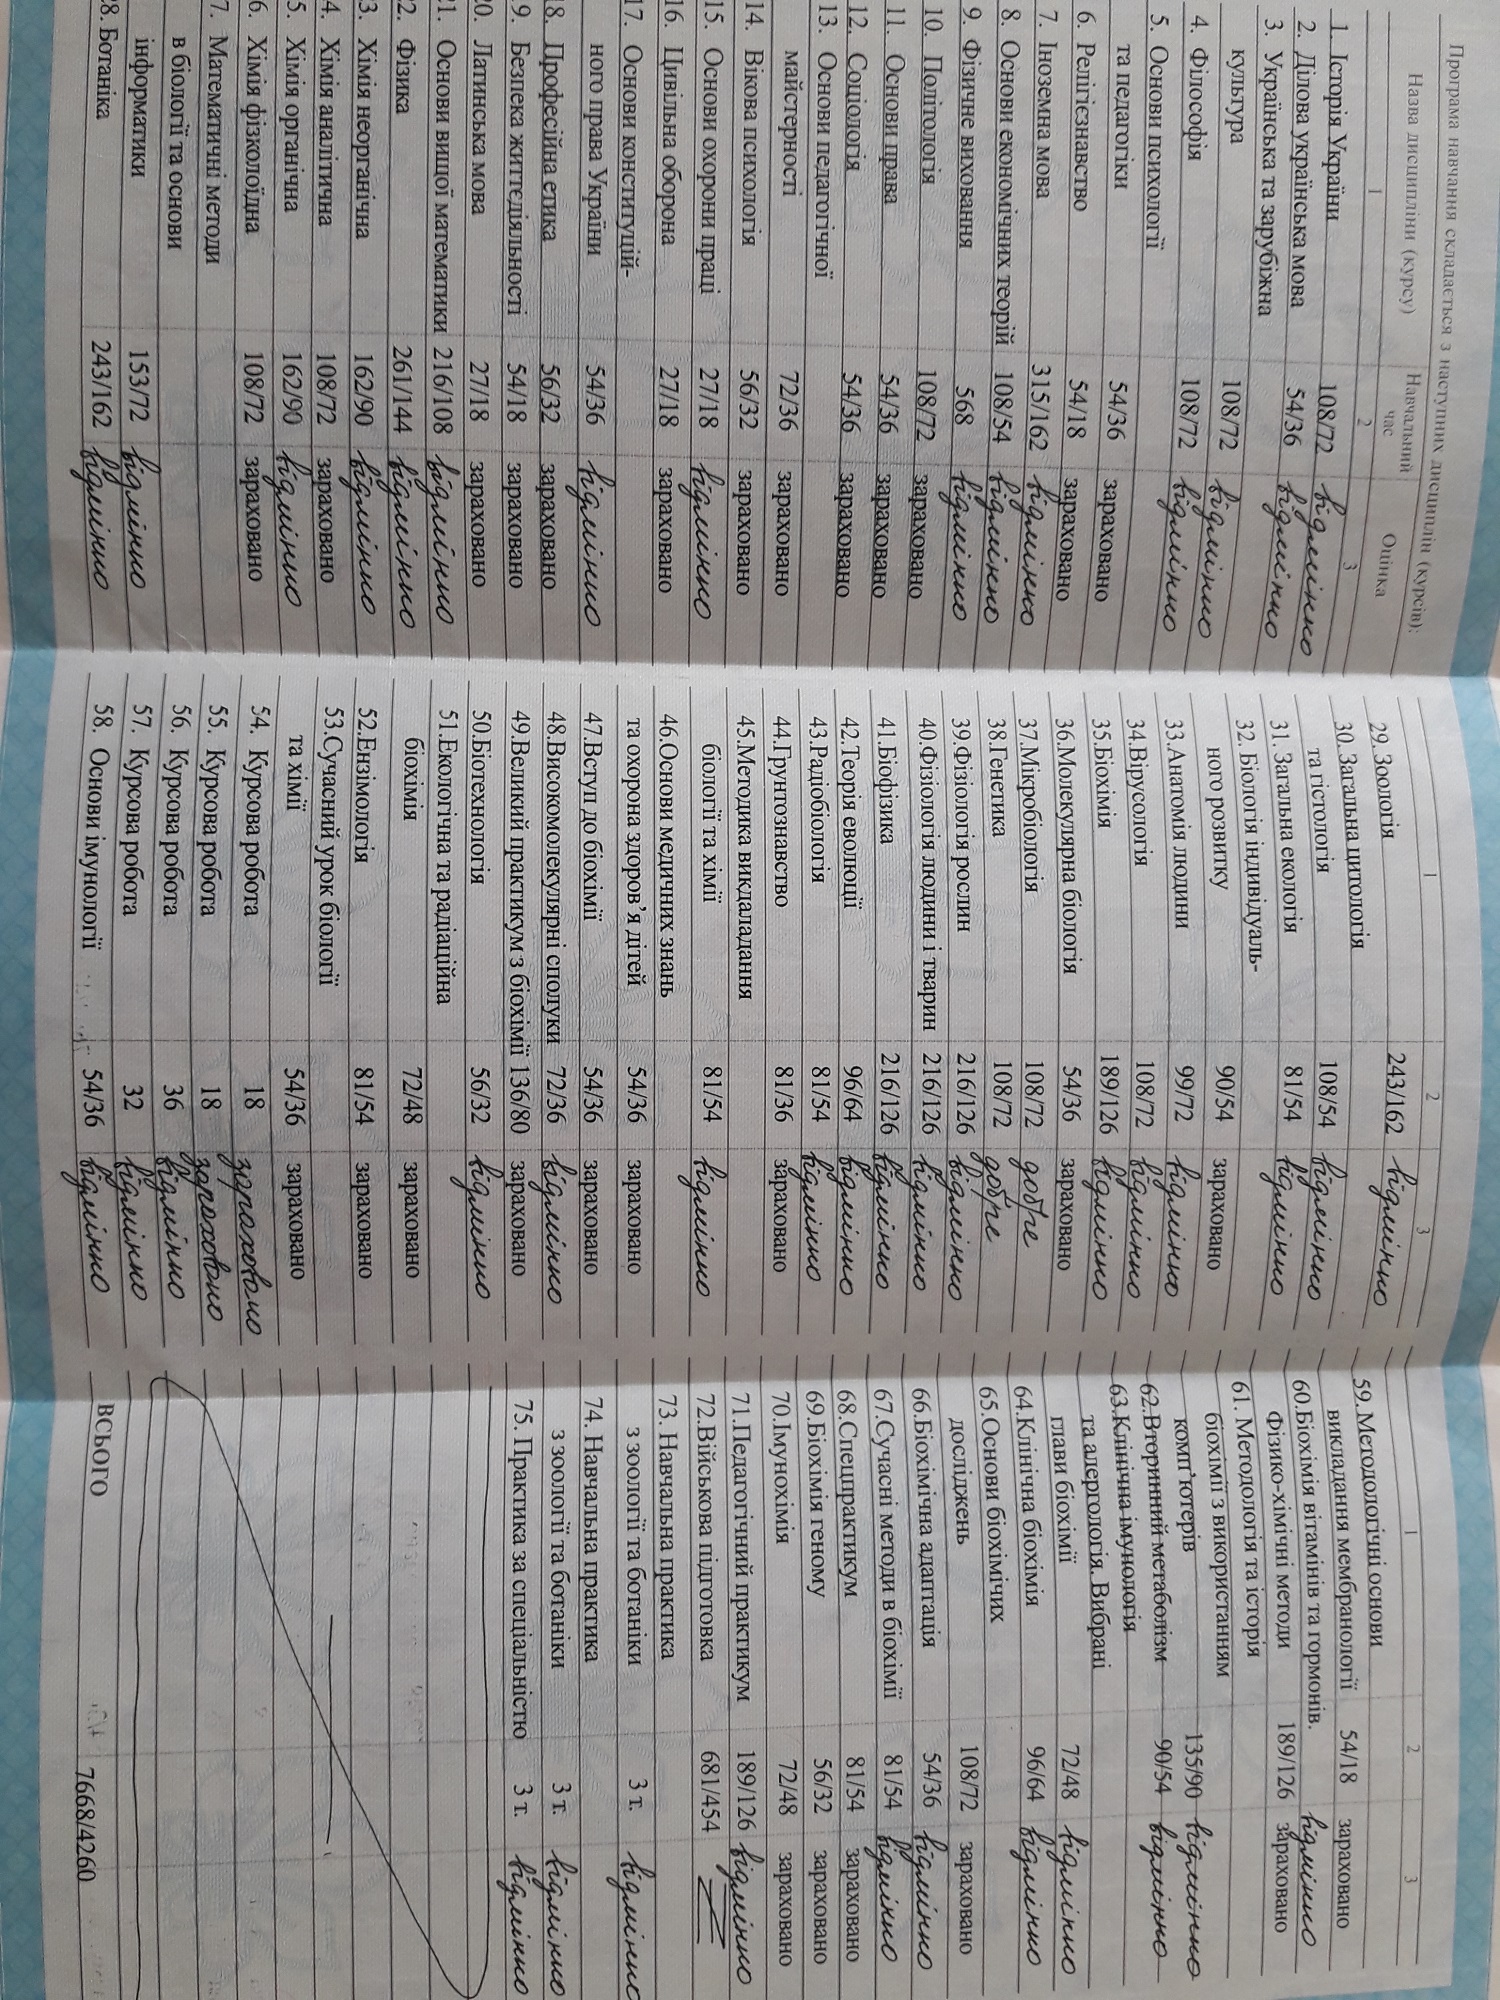 Програма навчання складається з наступних дисциплін (курсів):
Назва дисципліни (курсу) Навчальний час Оцінка
1 2 3
1. Історія України 108/72 відмінно
2. Ділова українська мова 54/36 відмінно
3. Українська та зарубіжна
культура 108/72 відмінно
4. Філософія 108/72 відмінно
5. Основи психології
та педагогіки 54/36 зараховано
6. Релігієзнавство 54/18 зараховано
7. Іноземна мова 315/162 відмінно
8. Основи економічних теорій 108/54 відмінно
9. Фізичне виховання 568 відмінно
10. Політологія 108/72 зараховано
11. Основи права 54/36 зараховано
12. Соціологія 54/36 зараховано
13. Основи педагогічної
майстерності 72/36 зараховано
14. Вікова психологія 56/32 зараховано
15. Основи охорони праці 27/18 відмінно
16. Цивільна оборона 27/18 зараховано
17. Основи конституцій-
ного права України 54/36 відмінно
18. Професійна етика 56/32 зараховано
19. Безпека життєдіяльності 54/18 зараховано
20. Латинська мова 27/18 зараховано
21. Основи вищої математики 216/108 відмінно
22. Фізика 261/144 відмінно
3. Хімія неорганічна 162/90 відмінно
4. Хімія аналітична 108/72 зараховано
5. Хімія органічна 162/90 відмінно
6. Хімія фізколоїдна 108/72 зараховано
7. Математичні методи
в біології та основи
інформатики 153/72 відмінно
28. Ботаніка 243/162 відмінно
1 2 3
29. Зоологія 243/162 відмінно
30. Загальна цитологія
та гістологія 108/54 відмінно
31. Загальна екологія 81/54 відмінно
32. Біологія індивідуаль-
ного розвитку 90/54 зараховано
33.Анатомія людини 99/72 відмінно
34.Вірусологія 108/72 відмінно
35.Біохімія 189/126 відмінно
36.Молекулярна біологія 54/36 зараховано
37.Мікробіологія 108/72 добре
38.Генетика 108/72 добре
39.Фізіологія рослин 216/126 відмінно
40.Фізіологія людини і тварин 216/126 відмінно
41.Біофізика 216/126 відмінно
42.Теорія еволюції 96/64 відмінно
43.Радіобіологія 81/54 відмінно
44.Грунтознавство 81/36 зараховано
45.Методика викдаладання
біології та хімії 81/54 відмінно
46.Основи медичних знань
та охорона здоров'я дітей 54/36 зараховано
47.Вступ до біохімії 54/36 зараховано
48.Високомолекулярні сполуки 72/36 відмінно
49.Великий практикум з біохімії 136/80 зараховано
50.Біотехнологія 56/32 відмінно
51.Екологічна та радіаційна
біохімія 72/48 зараховано
52.Ензімологія 81/54 зараховано
53.Сучасний урок біології
та хімії 54/36 зараховано
54. Курсова робота 18 зараховано
55. Курсова робота 18 зараховано
56. Курсова робота 36 відмінно
57. Курсова робота 32 відмінно
58. Основи імунології 54/36 відмінно
1 2 3
59. Методологічні основи
викладання мембранології 54/18 зараховано
60.Біохімія вітамінів та гормонів. 189/126 відмінно
Фізико-хімічні методи зараховано
61. Методологія та історія
біохімії з використанням
комп'ютерів 135/90 відмінно
62.Вторинний метаболізм 90/54 відмінно
63.Клінічна імунологія
та алергологія. Вибрані
глави біохімії 72/48 відмінно
64.Клінічна біохімія 96/64 відмінно
65.Основи біохімічих
досліджень 108/72 зараховано
66.Біохімічна адаптація 54/36 відмінно
67.Сучасні методи в біохімії 81/54 відмінно
68.Спецпрактикум 81/54 зараховано
69.Біохімія геному 56/32 зараховано
70.Імунохімія 72/48 зараховано
71.Педагогічний практикум 189/126 відмінно
72.Військова підготовка 681/454
73. Навчальна практика
з зоології та ботаніки 3 т. відмінно
74. Навчальна практика
з зоології та ботаніки 3 т. відмінно
75. Практика за спеціальністю 3 т. відмінно
ВСЬОГО 7668/4260